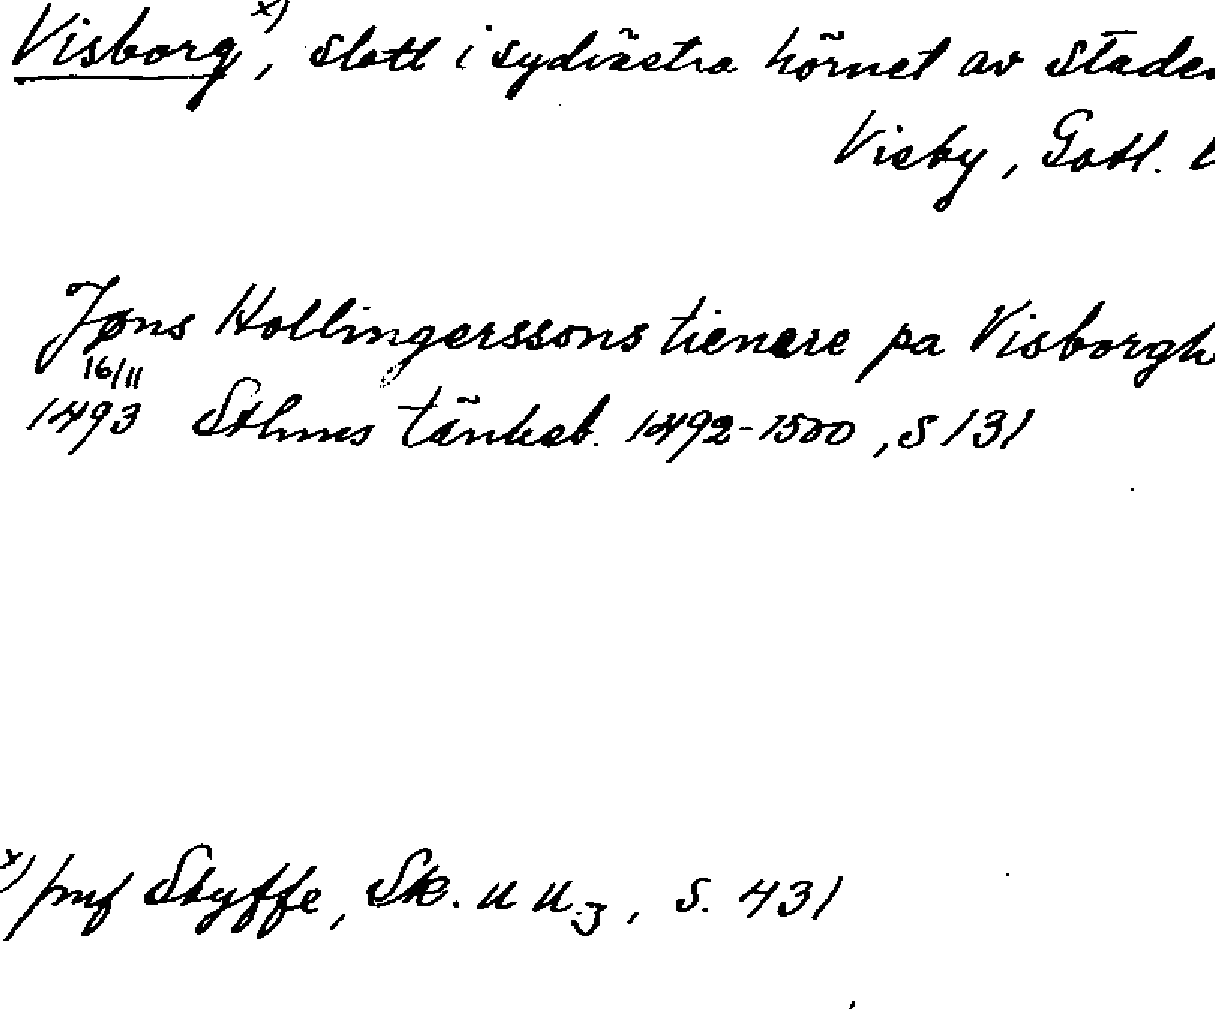 Visborg x), slott i sydvästra hörnet av staden
Visby, Gotl. l
Jøns Hollingerssons tienere pa Visborgh
16/11
1493 Sthms tänkeb. 1492-1500, s 131
x) jmf Styffe, Sk. u u 3, s. 431